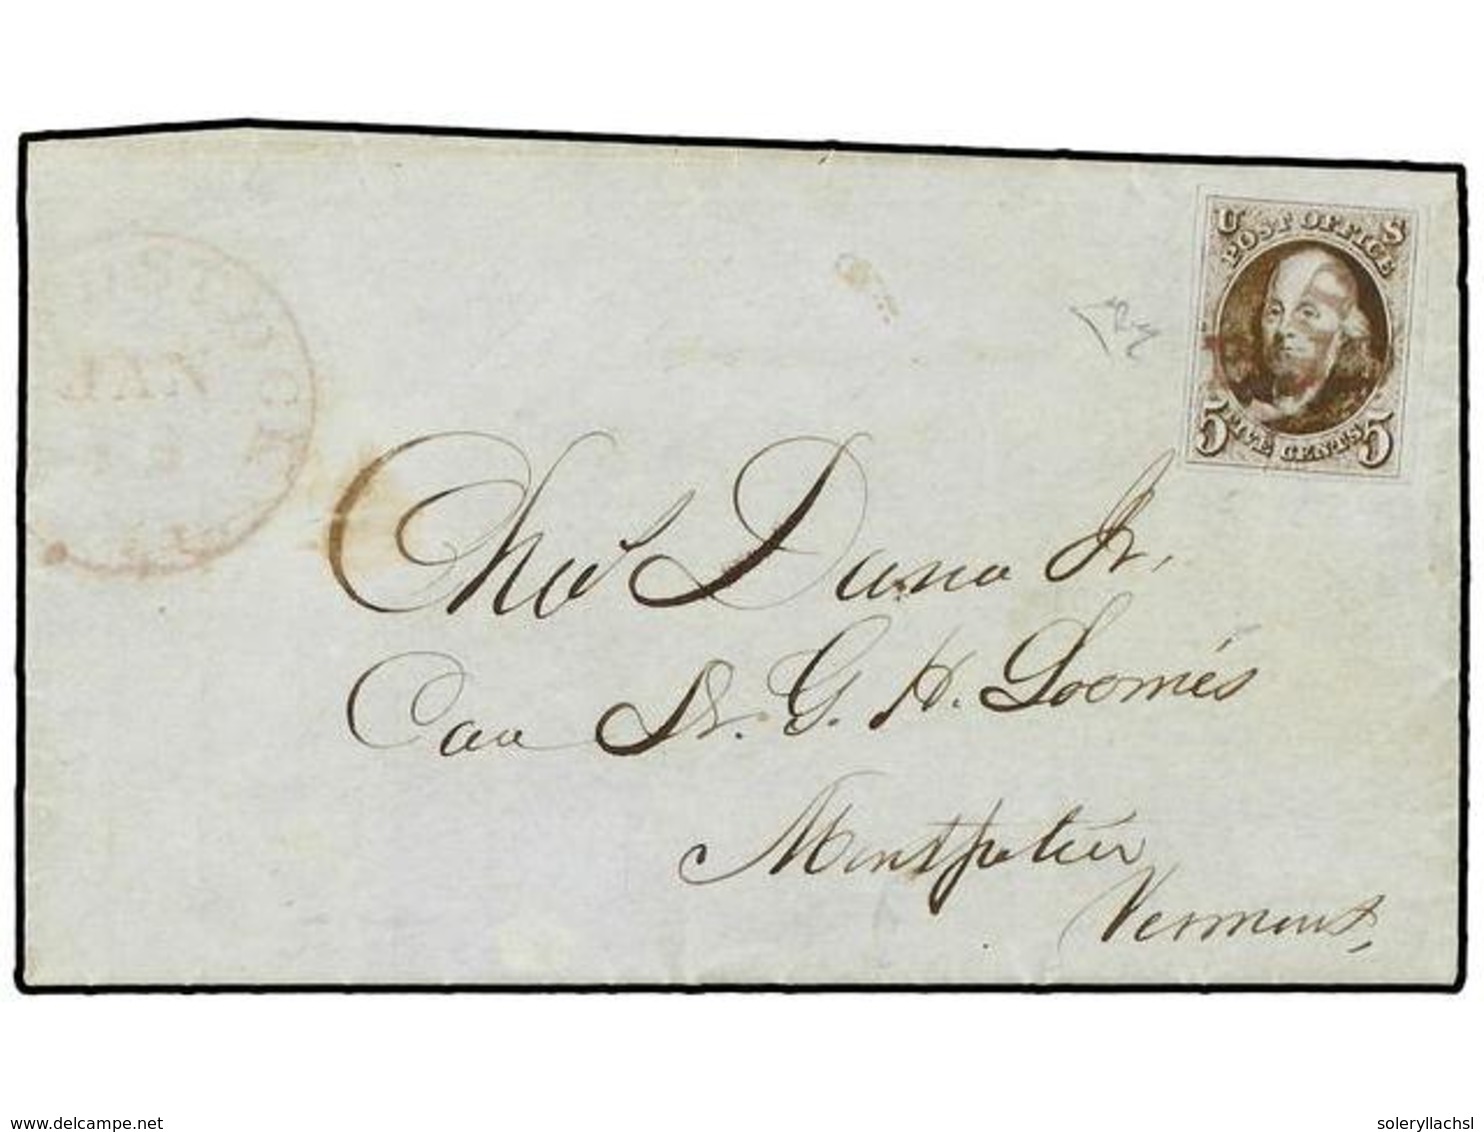 U S
POST OFFICE
5 FIVE CENTS 5
Chas Dana Jr.
Care Dr. G. H. Loomis
Montpelier
Vermont,
www.delcampe.net
soleryllachsl